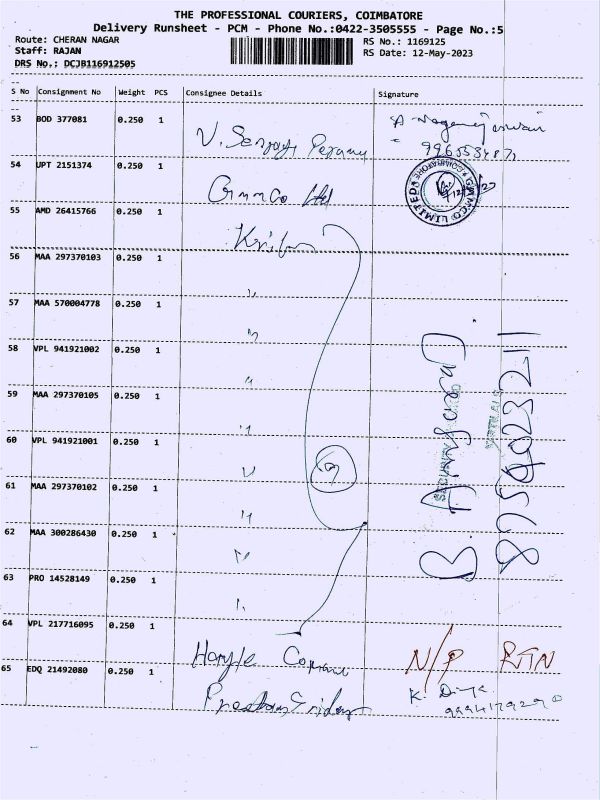 THE PROFESSIONAL COURIERS, COIMBATORE
Delivery Runsheet - PCM - Phone No.:0422-3505555 - Page No.:5
Route: CHERAN NAGAR
RS No.: 1169125
Staff: RAJAN
RS Date: 12-May-2023
DRS No.: DCJB116912505
S No Consignment No Weight PCS Consignee Details Signature
53 BOD 377081 0.250 1
V. Senjay
54 UPT 2151374 0.250 1
Gmmco Ltd
GMMCO LIMITED
55 AMD 26415766 0.250 1
56 MAA 297370103 0.250 1
〃
57 MAA 570004778 0.250 1
〃
58 VPL 941921002 0.250 1
〃
59 MAA 297370105 0.250 1
〃
60 VPL 941921001 0.250 1
〃
61 MAA 297370102 0.250 1
〃
62 MAA 300286430 0.250 1
〃
63 PRO 14528149 0.250 1
〃
B. Anguraj
8754023211
64 VPL 217716095 0.250 1
N/P RTN
65 EDQ 21492080 0.250 1
K. Divya
9994179290